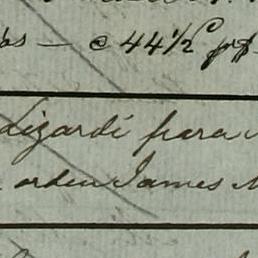 bs — c 44½ p
Lizardi para
orden James M